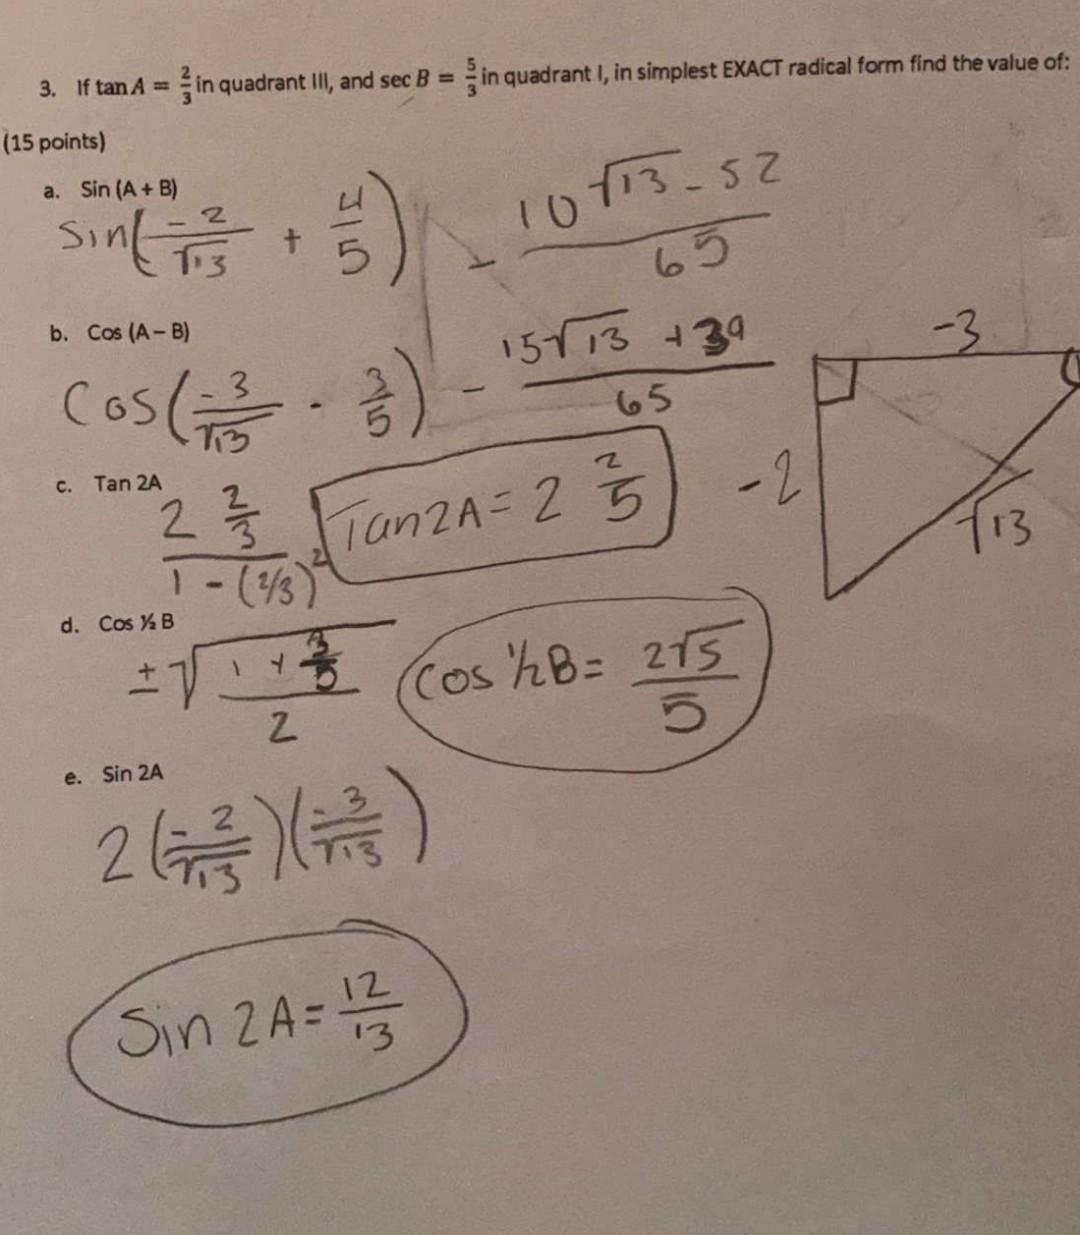 3. If tan A = 2/3 in quadrant III, and sec B = 5/3 in quadrant I, in simplest EXACT radical form find the value of:
(15 points)
a. Sin (A + B)
Sin(-2/√13 + 4/5) - 10√13 - 52/65
b. Cos (A – B)
Cos(-3/√13 - 3/5) - 15√13 + 39/65
-3
c. Tan 2A
2 2/3 / 1 - (2/3)² Tan2A = 2 2/5
-2
√13
d. Cos ½ B
±√1 + 3/5 / 2 Cos ½B = 2√5/5
e. Sin 2A
2(-2/√13)(-3/√13)
Sin 2A = 12/13